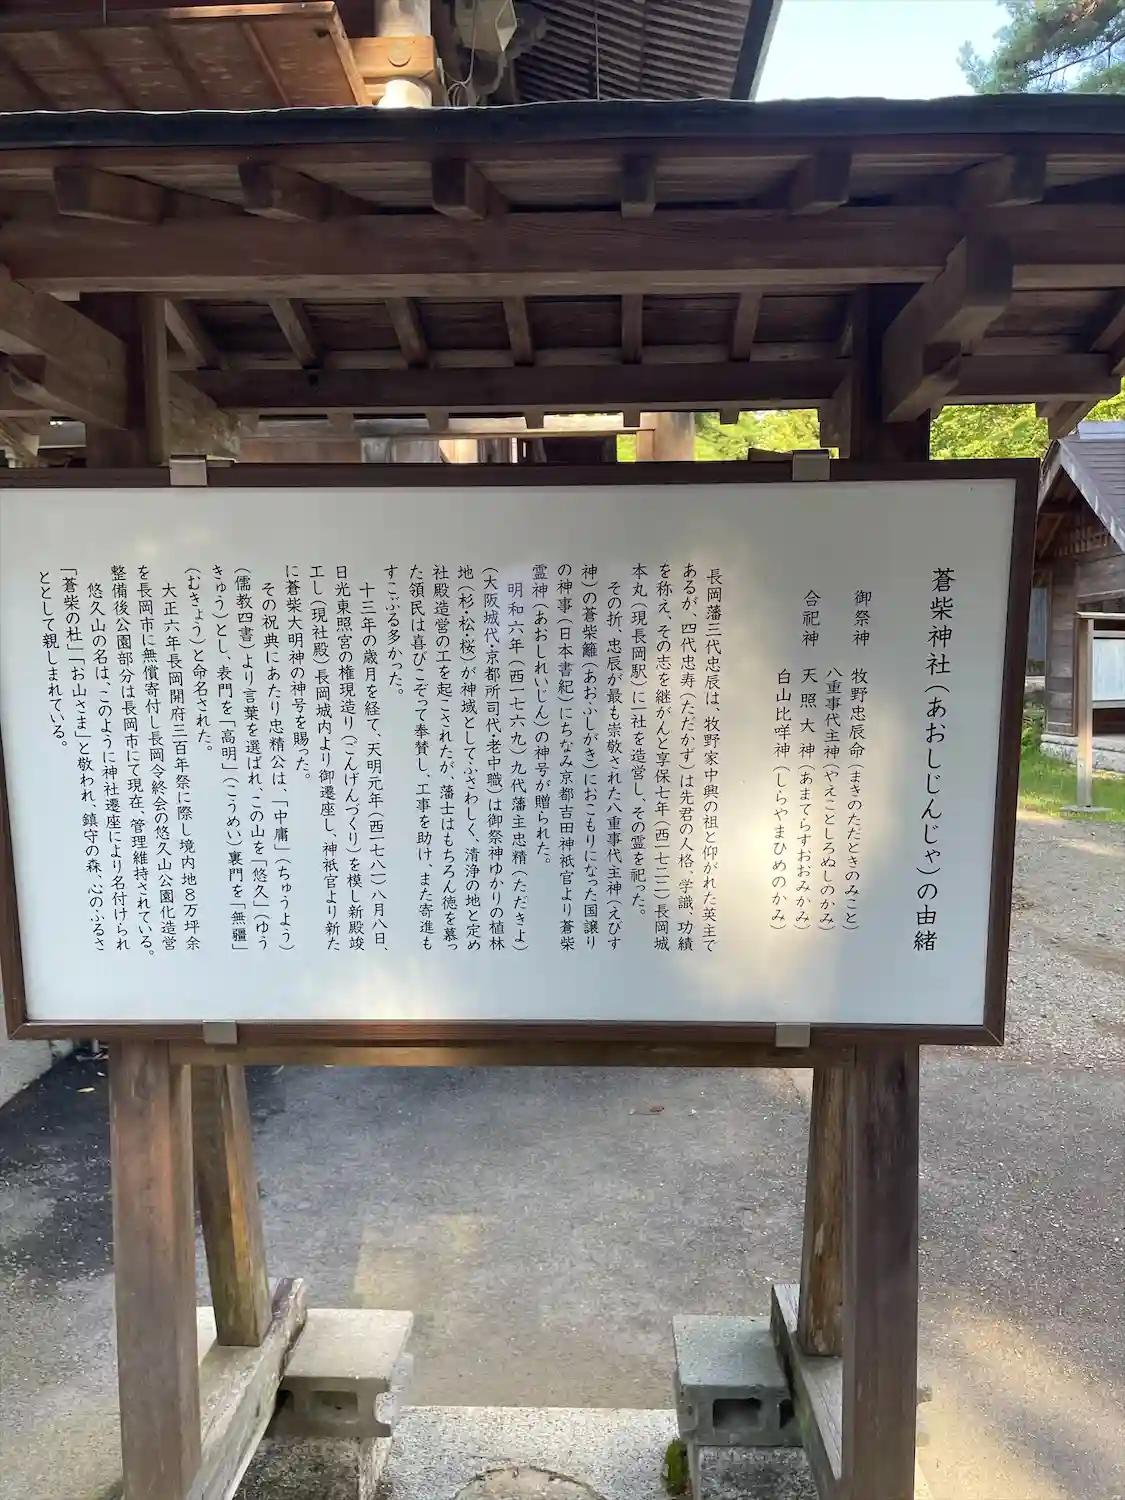 蒼柴神社（あおしじんじゃ）の由緒
御祭神　牧野忠辰命（まきのただときのみこと）
八重事代主神（やえことしろぬしのかみ）
合祀神　天照大神（あまてらすおおみかみ）
白山比咩神（しらやまひめのかみ）
長岡藩三代忠辰は、牧野家中興の祖と仰がれた英主で
あるが、四代忠寿（ただかず）は先君の人格、学識、功績
を称え、その志を継がんと享保七年（西一七二二）長岡城
本丸（現長岡駅）に一社を造営し、その霊を祀った。
その折、忠辰が最も崇敬された八重事代主神（えびす
神）の蒼柴籬（あおふしがき）におこもりになった国譲り
の神事（日本書紀）にちなみ京都吉田神祇官より蒼柴
霊神（あおしれいじん）の神号が贈られた。
明和六年（西一七六九）九代藩主忠精（ただきよ）
（大阪城代・京都所司代・老中職）は御祭神ゆかりの植林
地（杉・松・桜）が神域としてふさわしく、清浄の地と定め
社殿造営の工を起こされたが、藩士はもちろん徳を慕っ
た領民は喜びこぞって奉賛し、工事を助け、また寄進も
すこぶる多かった。
十三年の歳月を経て、天明元年（西一七八一）八月八日、
日光東照宮の権現造り（ごんげんづくり）を模し新殿竣
工し（現社殿）長岡城内より御遷座し、神祇官より新た
に蒼柴大明神の神号を賜った。
その祝典にあたり忠精公は、「中庸」（ちゅうよう）
（儒教四書）より言葉を選ばれ、この山を「悠久」（ゆう
きゅう）とし、表門を「高明」（こうめい）裏門を「無疆」
（むきょう）と命名された。
大正六年長岡開府三百年祭に際し境内地８万坪余
を長岡市に無償寄付し長岡令終会の悠久山公園化造営
整備後公園部分は長岡市にて現在、管理維持されている。
悠久山の名は、このように神社遷座により名付けられ
「蒼柴の杜」「お山さま」と敬われ、鎮守の森、心のふるさ
ととして親しまれている。